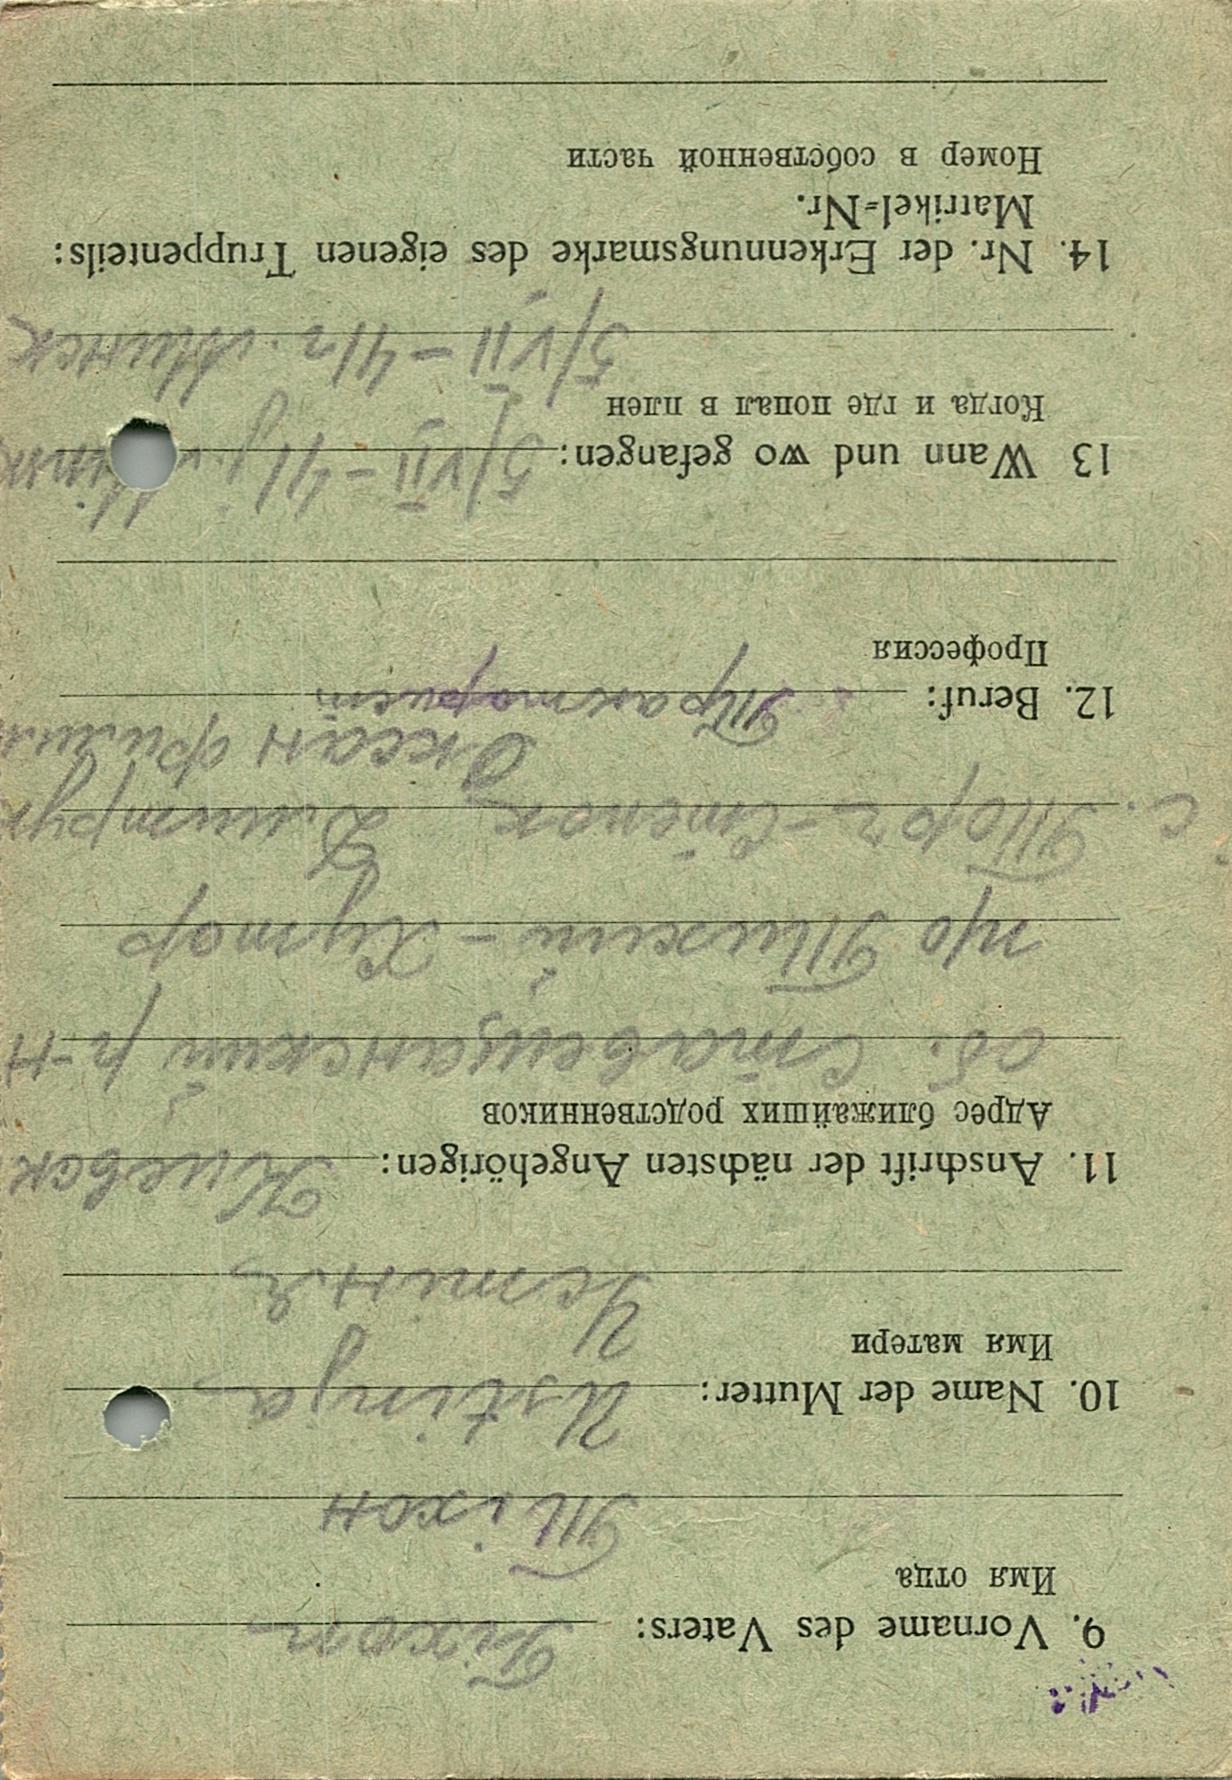 9. Vorname des Vaters: Tixon
Имя отца
Тіхон
10. Name der Mutter: Ustinja
Имя матери
Устиня
11. Anschrift der nächsten Angehörigen: Киевск
Адрес ближайших родственников
об. Ставещанский р-н
п/о Тихий - Хутор
с. Торч - Степок Дмитрук
Оксан
12. Beruf: Тракторист
Профессия
13 Wann und wo gefangen: 5/VII - 41j.
Когда и где попал в плен
5/VII - 41 г. Минск
14. Nr. der Erkennungsmarke des eigenen Truppenteils:
Matrikel=Nr.
Номер в собственной части